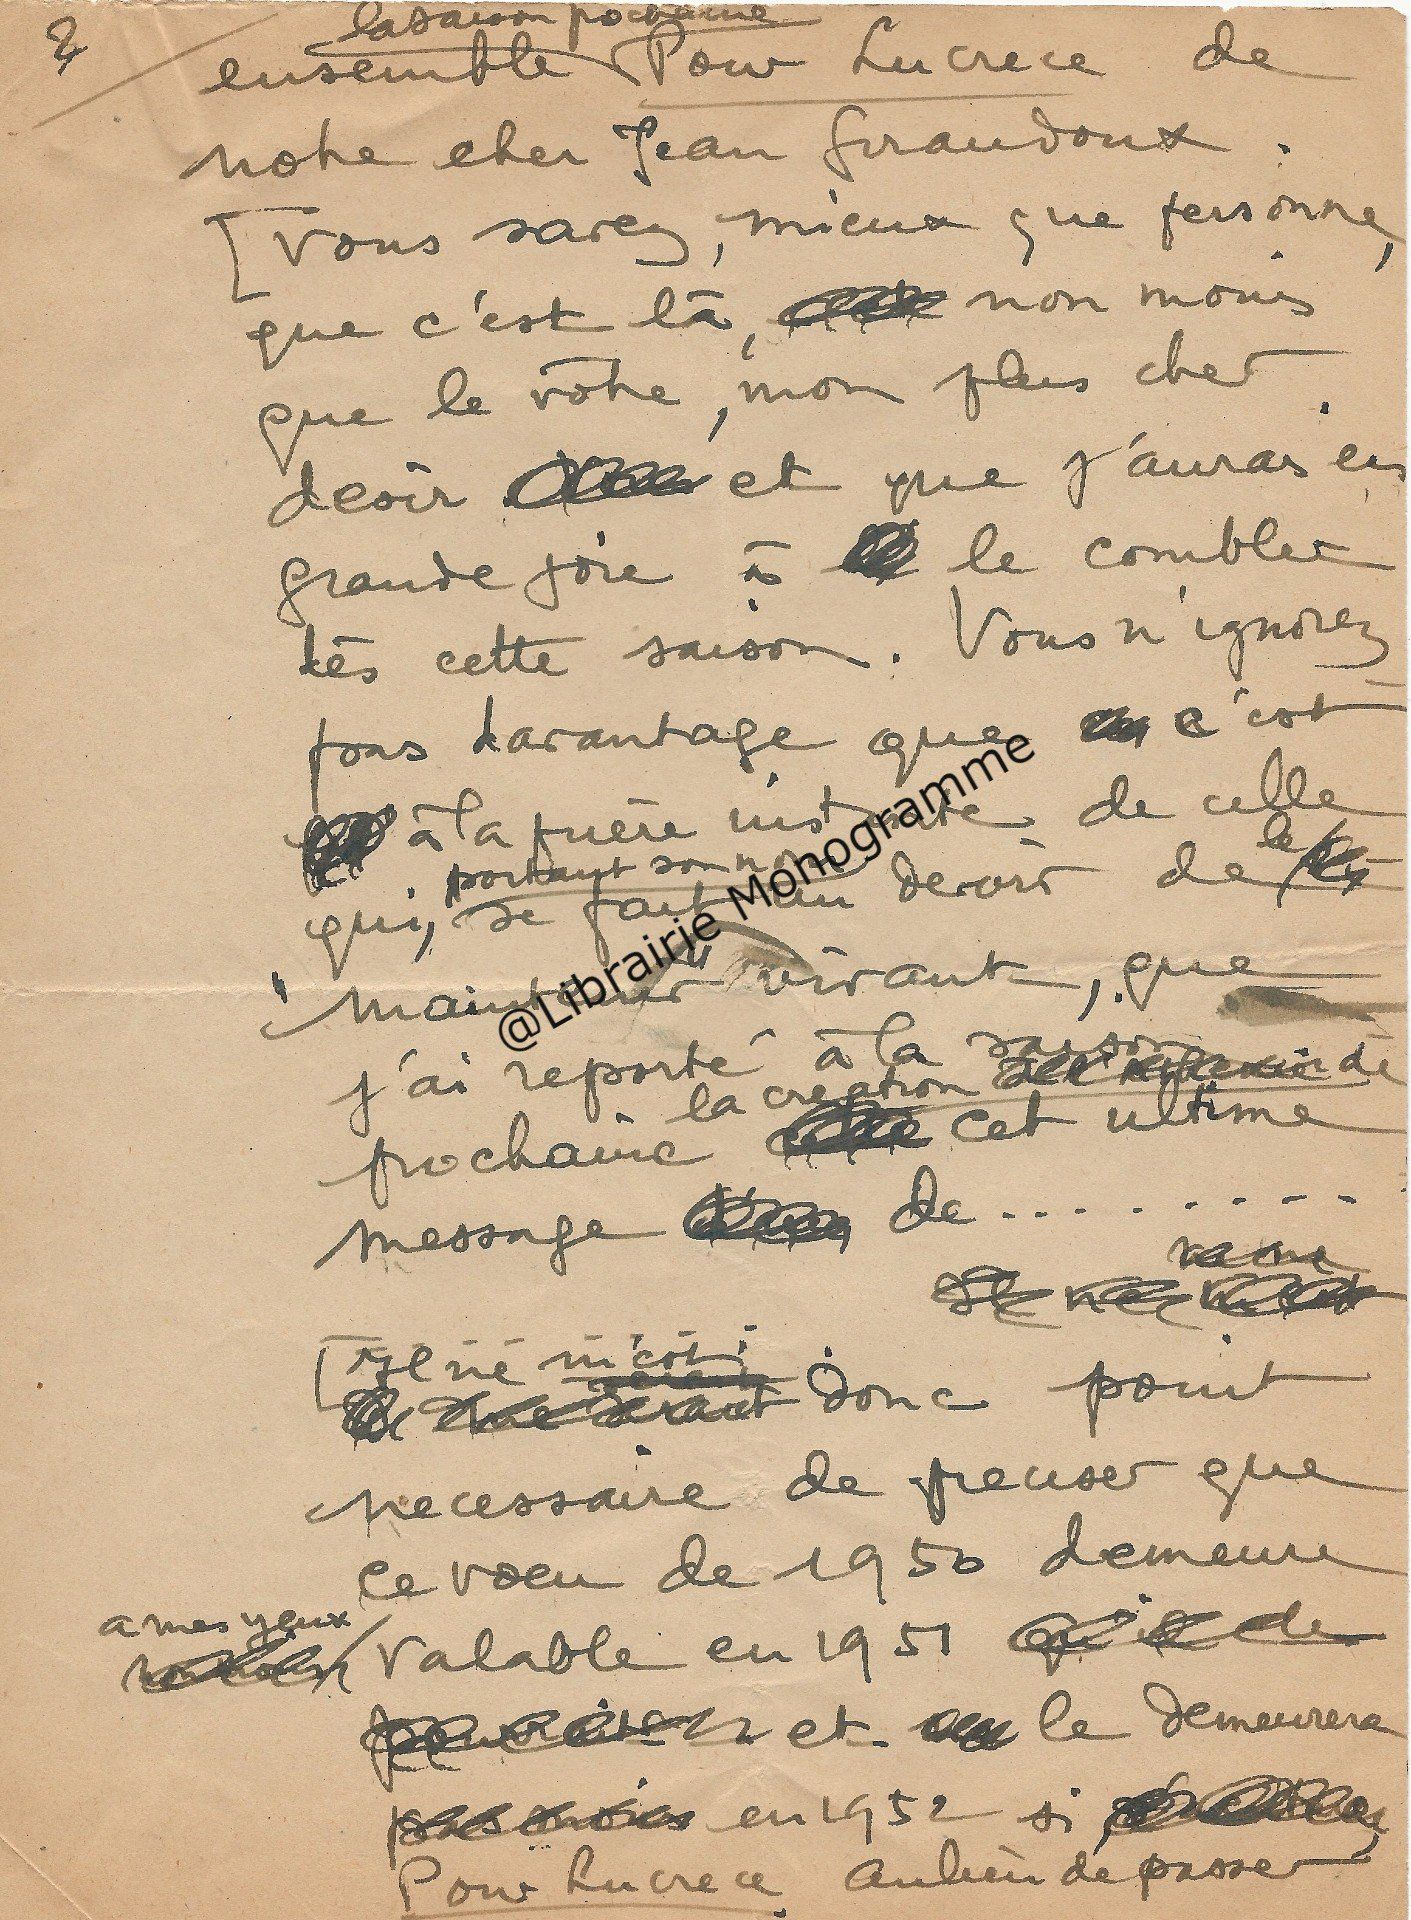 2
la saison prochaine
ensemble Pour Lucrece de
notre cher Jean Giraudoux.
[Vous savez, mieux que personne,
que c'est là, non moins
que le vôtre, mon plus cher
desir et que j'aurais eu
grande joie à le combler
dès cette saison. Vous n'ignorez
pas davantage que c'est
à la prière instante de celle
portant son nom
qui, se fait un devoir de le
"maintenir" vivant, que
j'ai reporté à la saison
la création de
prochaine cet ultime
message de .........
[Il ne m'est
donc point
necessaire de preciser que
ce voeu de 1950 demeure
a mes yeux
valable en 1951
et le demeurera
en 1952 si,
Pour Lucrece, au lieu de passer
@Librairie Monogramme